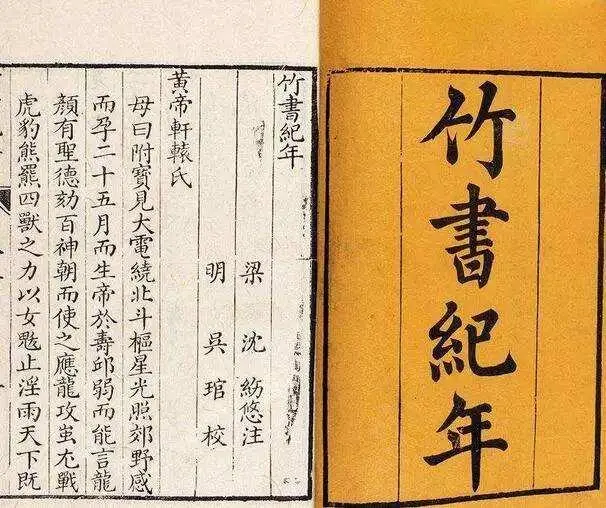 竹書紀年
竹書紀年
梁 沈 約悠注
明 吳 琯 校
黃帝軒轅氏
母曰附寶見大電繞北斗樞星光照郊野感
而孕二十五月而生帝於壽邱弱而能言龍
顏有聖德劾百神朝而使之應龍攻蚩尤戰
虎豹熊羆四獸之力以女魃止淫雨天下既